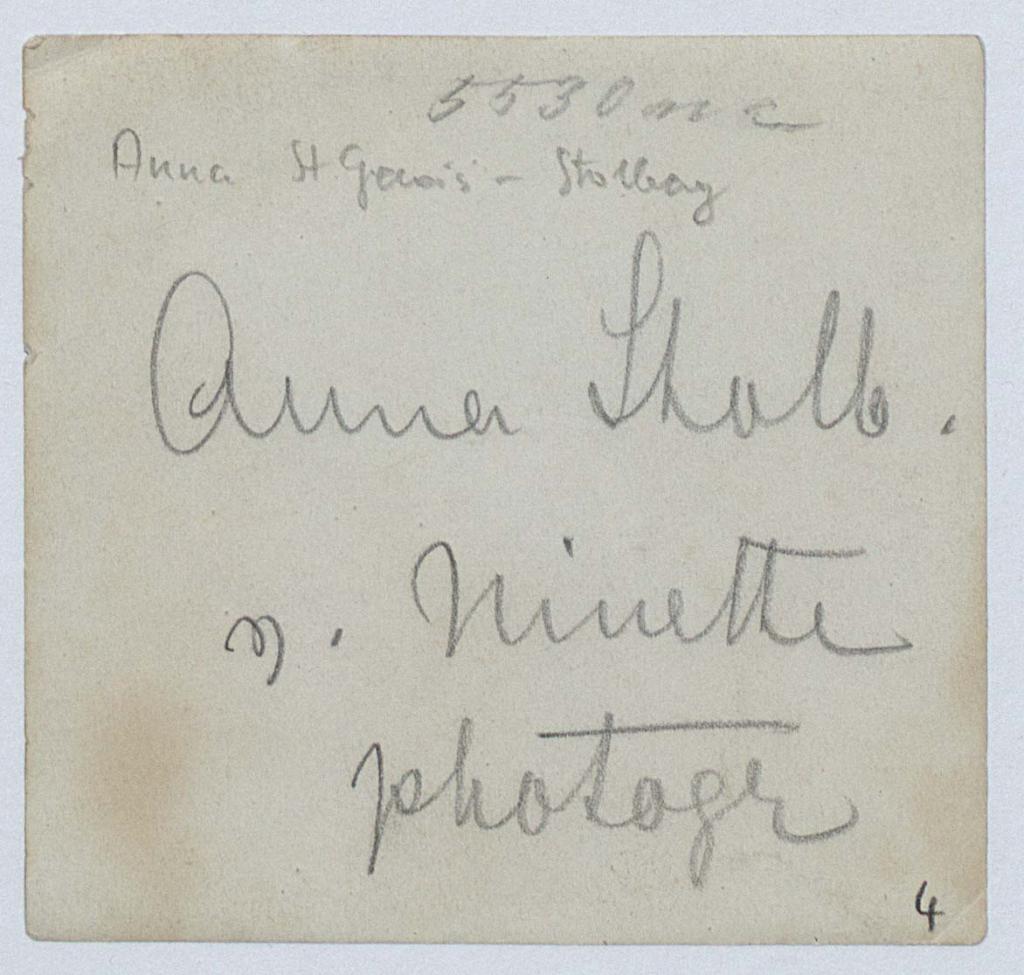 5530 n c
Anna St. Gervais - Stolberg
Anna Stollb.
v. Ninette
photogr
4